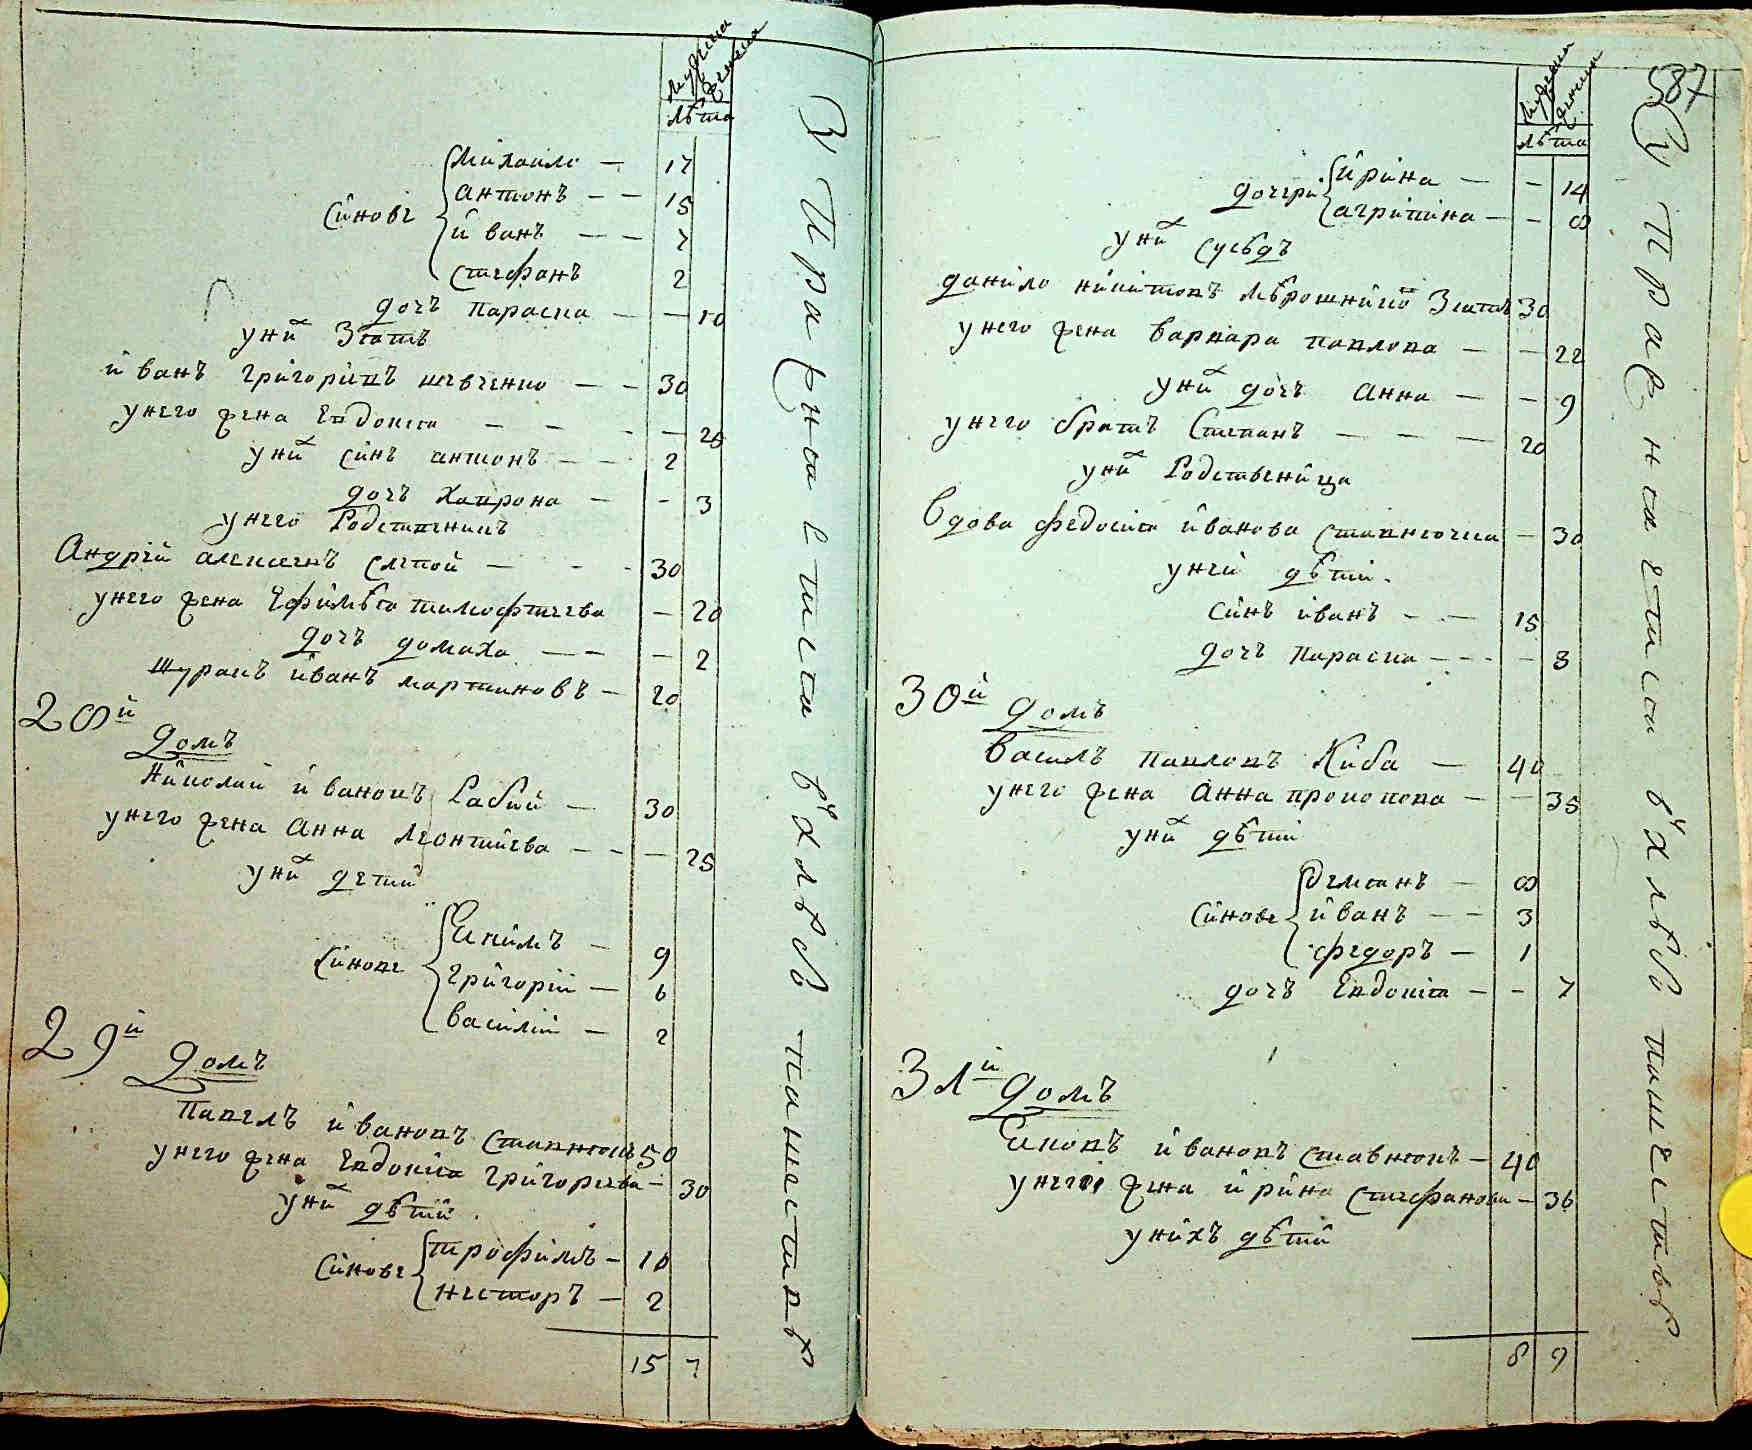 мужеска
женска
лѣта
Сйнове
Михаило — 17
антонъ — — 15
йванъ — — 7
Стефанъ 2
дочъ параска — — 10
унй Зять
йванъ григорiевъ шевченко — — 30
унего жена Евдокiя — — — 20
унй сйнъ антонъ — — 2
дочъ Хаврона — — 3
унего Родственикъ
Андрей алексеевъ слепой — — — 30
унего жена Ефимѣя тимофтиева — 20
дочъ домаха — — — 2
шуракъ йванъ мартиновъ — 20
28й
домъ
Нйколай йвановъ Рабий — 30
унего жена Анна леонтийева — — — 25
унй детий
Сйнове
Екимъ — 9
Григорий — 6
василий — 2
29й домъ
павелъ йвановъ ставнюкъ 50
унего жена Евдокiя Григориева — 30
унй дѣтий
Сйнове
трофимъ — 10
несторъ — 2
15 7
мужеска
женска
лѣта
587
дочери
йрина — — 14
агрипина — — 8
унй сусѣдъ
данило никитовъ Зять 30
унего жена варвара павлова — — 22
унй дочъ Анна — — 9
унего братъ Степанъ — — — 20
унй Родственица
Вдова федосия йванова ставнючка — 30
уней дѣтий
сйнъ йванъ — — 15
дочъ параска — — — 8
30й домъ
василъ павловъ Киба — 40
унего жена Анна прокопова — — 35
унй дѣтий
Сйнове
демянъ — 8
йванъ — — 3
федоръ — 1
дочъ Евдокiя — — 7
31й домъ
Яковъ йвановъ ставнюкъ — 40
унего жена йрина стефанова — 36
унйхъ дѣтий
8 9